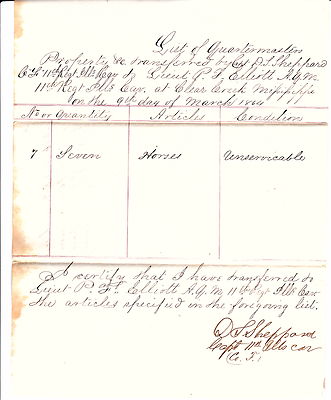 List of Quartermasters
Property &c transferred by Capt D. S. Sheppard
Co. 11th Regt Ills Cav to Lieut P. F. Elliott A.Q.M.
11th Regt Ills Cav. at Clear Creek Mississippi
on the 9th day of March 1864
No or Quantity Articles Condition
7 Seven Horses Unservicable
I certify that I have transferred to
Lieut P. F. Elliott A.Q.M. 11th Regt Ills Cav
the articles specified in the foregoing list.
D. S. Sheppard
Capt 11th Ills Cav
Co.